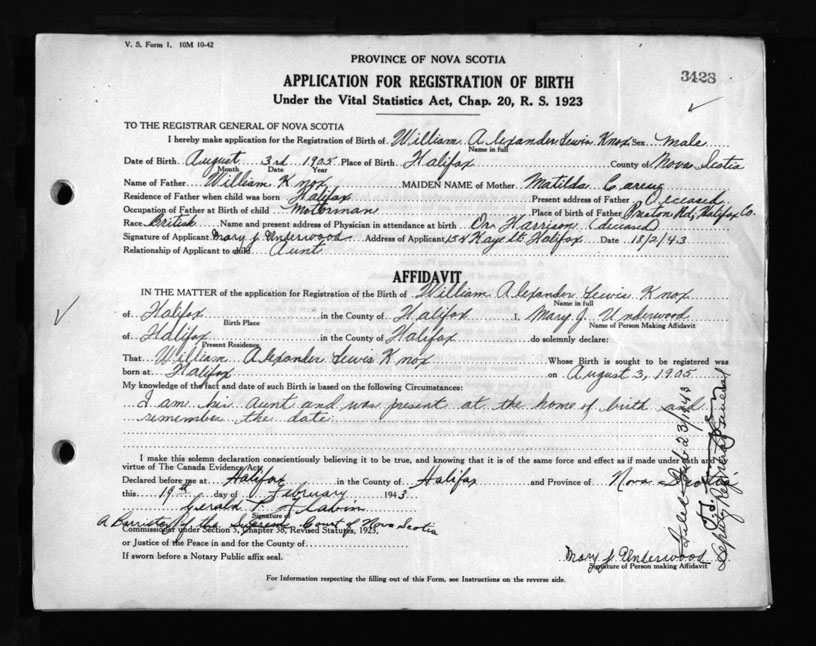 V. S. Form 1. 10M 10-42
PROVINCE OF NOVA SCOTIA
APPLICATION FOR REGISTRATION OF BIRTH
3428
Under the Vital Statistics Act, Chap. 20, R. S. 1923
TO THE REGISTRAR GENERAL OF NOVA SCOTIA
I hereby make application for the Registration of Birth of William Alexander Lewis Knox Sex male
Name in full
Date of Birth August 3rd 1905 Place of Birth Halifax County of Nova Scotia
Month Date Year
Name of Father William Knox MAIDEN NAME of Mother Matilda
Residence of Father when child was born Halifax Present address of Father Deceased
Occupation of Father at Birth of child Motorman Place of Birth of Father Preston Rd, Halifax Co.
Race British Name and present address of Physician in attendance at birth Dr. Harrison (deceased)
Signature of Applicant Mary J. Underwood Address of Applicant 154 Kaye St Halifax Date 18/2/43
Relationship of Applicant to child Aunt
AFFIDAVIT
IN THE MATTER of the application for Registration of the Birth of William Alexander Lewis Knox
Name in full
of Halifax in the County of Halifax I, Mary J. Underwood
Birth Place Name of Person Making Affidavit
of Halifax in the County of Halifax do solemnly declare:
Present Residence
That William Alexander Lewis Knox Whose Birth is sought to be registered was
born at Halifax on August 3, 1905
My knowledge of the fact and date of such Birth is based on the following Circumstances:
I am his aunt and was present at the home of birth and
remember the date.
I make this solemn declaration conscientiously believing it to be true, and knowing that it is of the same force and effect as if made under oath and by
virtue of The Canada Evidence Act.
Declared before me at Halifax in the County of Halifax and Province of Nova Scotia
this 19th day of February 1943
Gerald P. Flavin
Signature of
A Barrister of the Supreme Court of Nova Scotia
Commissioner under Section 5, Chapter 38, Revised Statutes, 1923,
or Justice of the Peace in and for the County of
If sworn before a Notary Public affix seal.
Mary J. Underwood
Signature of Person making Affidavit
For Information respecting the filling out of this Form, see Instructions on the reverse side.
Filed Feb 23/1943
Deputy Registrar General